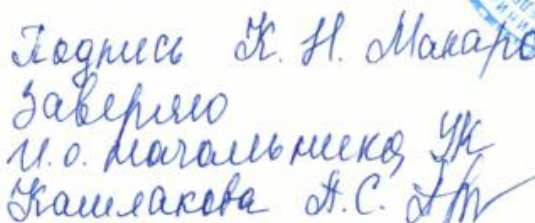 Подпись К. Н. Макаро
Заверяю
И.о. начальника УК
Кашлакова А.С.